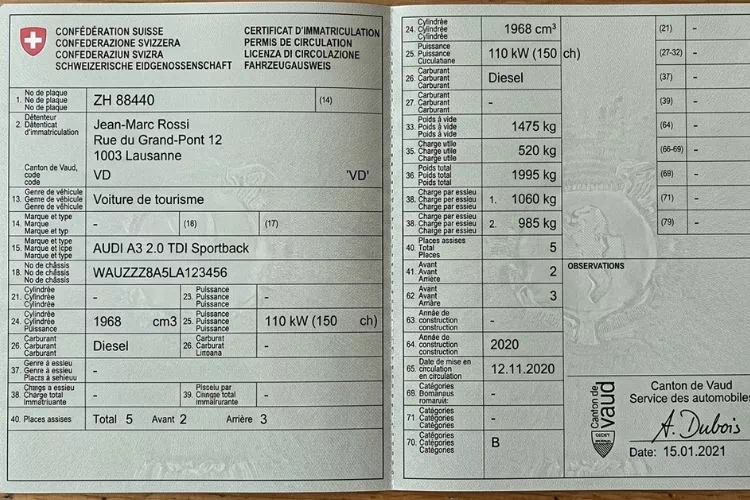 CONFÉDÉRATION SUISSE
CONFEDERAZIONE SVIZZERA
CONFEDERAZIUN SVIZRA
SCHWEIZERISCHE EIDGENOSSENSCHAFT
CERTIFICAT D'IMMATRICULATION
PERMIS DE CIRCULATION
LICENZA DI CIRCOLAZIONE
FAHRZEUGAUSWEIS
1. No de plaque
No de plaque
No de plaque
ZH 88440
(14)
2. Détenteur
Détenticat
d'immatriculation
Jean-Marc Rossi
Rue du Grand-Pont 12
1003 Lausanne
Canton de Vaud,
code
code
VD
'VD'
13. Genre de véhicule
Genre de véhicule
Genre de véhicule
Voiture de tourisme
14. Marque et type
Marque et type
-
(16)
(17)
15. Marque et type
Marque et type
AUDI A3 2.0 TDI Sportback
18. No de châssis
No de châssis
No de châssis
WAUZZZ8A5LA123456
21. Cylindrée
Cylindrée
Cylindrée
-
23. Puissance
Puissance
Puissance
-
24. Cylindrée
Cylindrée
Puissance
1968 cm3
25. Puissance
Puissance
Puissance
110 kW (150 ch)
26. Carburant
Carburant
Carburant
Diesel
26. Carburat
Carburat
-
37. Genre à essieu
Genre à essieu
-
38. Charge total
-
39.
-
40. Places assises
Total 5 Avant 2 Arrière 3
24. Cylindrée
Cylindrée
Cylindrée
1968 cm³
25. Puissance
Puissance
Cuculatiane
110 kW (150 ch)
26. Carburant
Carburant
Carburant
Diesel
27. Carburant
Carburant
Carburant
-
33. Poids à vide
Poids à vide
Poids à vide
1475 kg
35. Charge utile
Charge utile
Charge utile
520 kg
36. Poids total
Poids total
Poids total
1995 kg
38. Charge par essieu
Charge par essieu
Charge par essieu
1. 1060 kg
38. Charge par essieu
Charge par essieu
Charge par essieu
2. 985 kg
40. Places assises
Total
Places
5
41. Avant
Avant
Arrière
2
62. Avant
Avant
Arrière
3
63. Année de
construction
construction
-
64. Année de
construction
construction
2020
65. Date de mise en
circulation
en circulation
12.11.2020
69. Catégories
-
71. Catégories
Catégories
Catégories
-
70. Catégories
Catégories
Catégories
B
(21) -
(27-32) -
(37) -
(39) -
(64) -
(66-69) -
(69) -
(71) -
(79) -
OBSERVATIONS
Canton de
vaud
Canton de Vaud
Service des automobiles
A. Dubois
Date: 15.01.2021